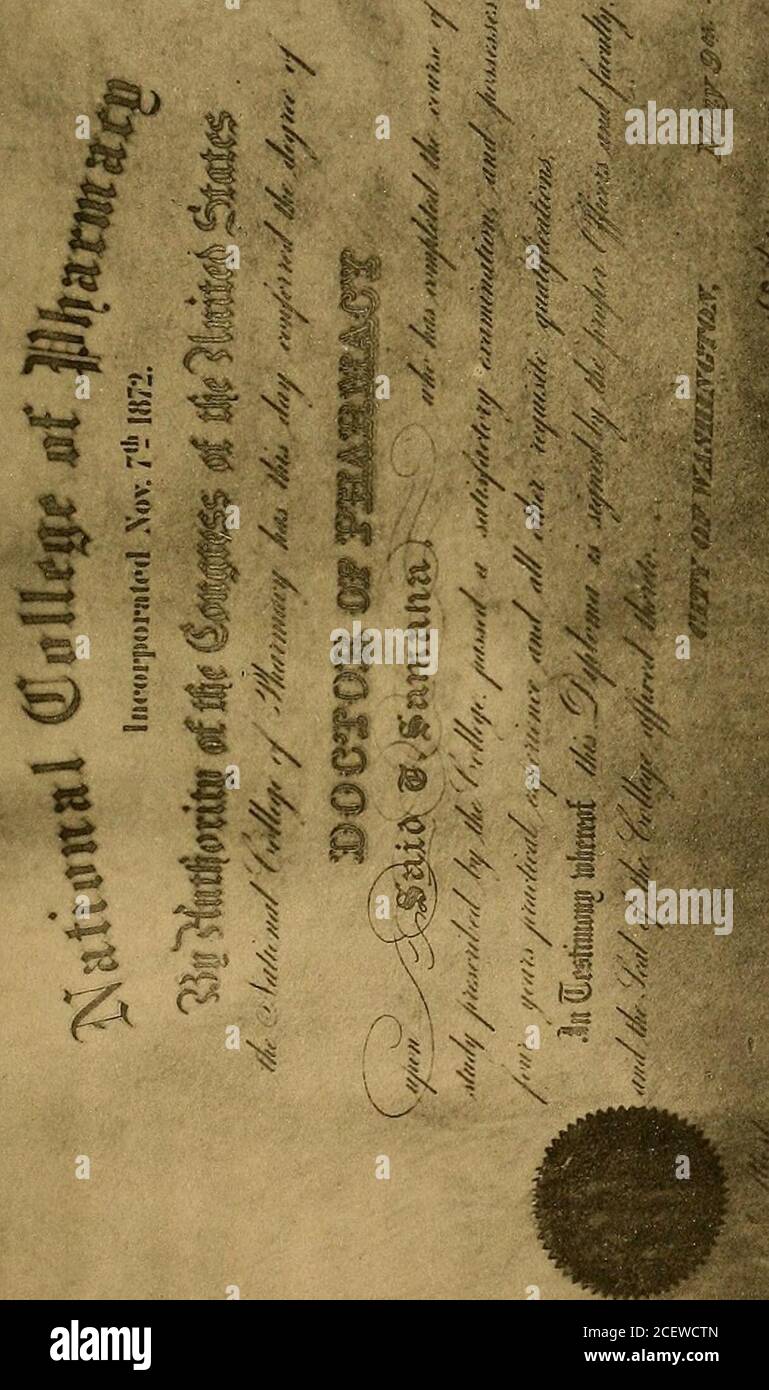 National College of Pharmacy
Incorporated Nov. 7th 1872.
By Authority of the Congress of the United States
the National College of Pharmacy has this day conferred the degree of
DOCTOR OF PHARMACY
upon Said T. Samaha, who has completed the course of
study prescribed by the College, passed a satisfactory examination, and possesses
four years practical experience and all other requisite qualifications.
In Testimony whereof this Diploma is signed by the proper Officers and faculty,
and the Seal of the College affixed thereto.
CITY OF WASHINGTON, May
alamy
Image ID: 2CEWCTN
www.alamy.com